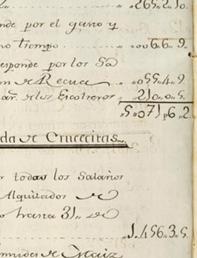 ..265.2.10.
nde por el gano y
no tiempo ..0066.9.
esponde por los Sa
n de Recua ..055.4.9.
añ. de los Escoteros 210.0.5.
5.071.6.2
da de Crucecitas
r todos los Salarios
Alquilados de
o hasta 31,, de
1.456.3.5.
omidas de Maiz